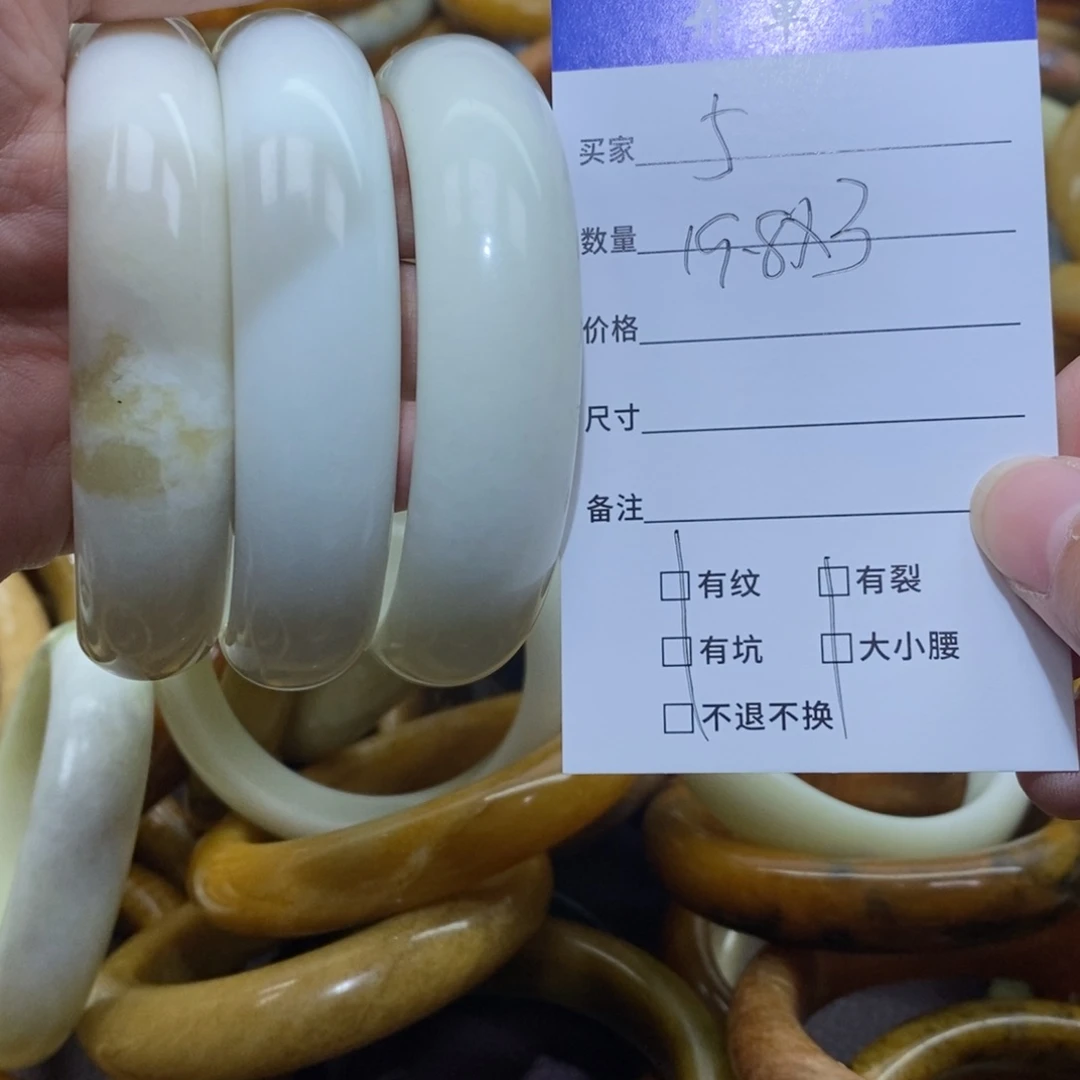 买家 5
数量 19.8X3
价格
尺寸
备注
□有纹 □有裂
□有坑 □大小腰
□不退不换